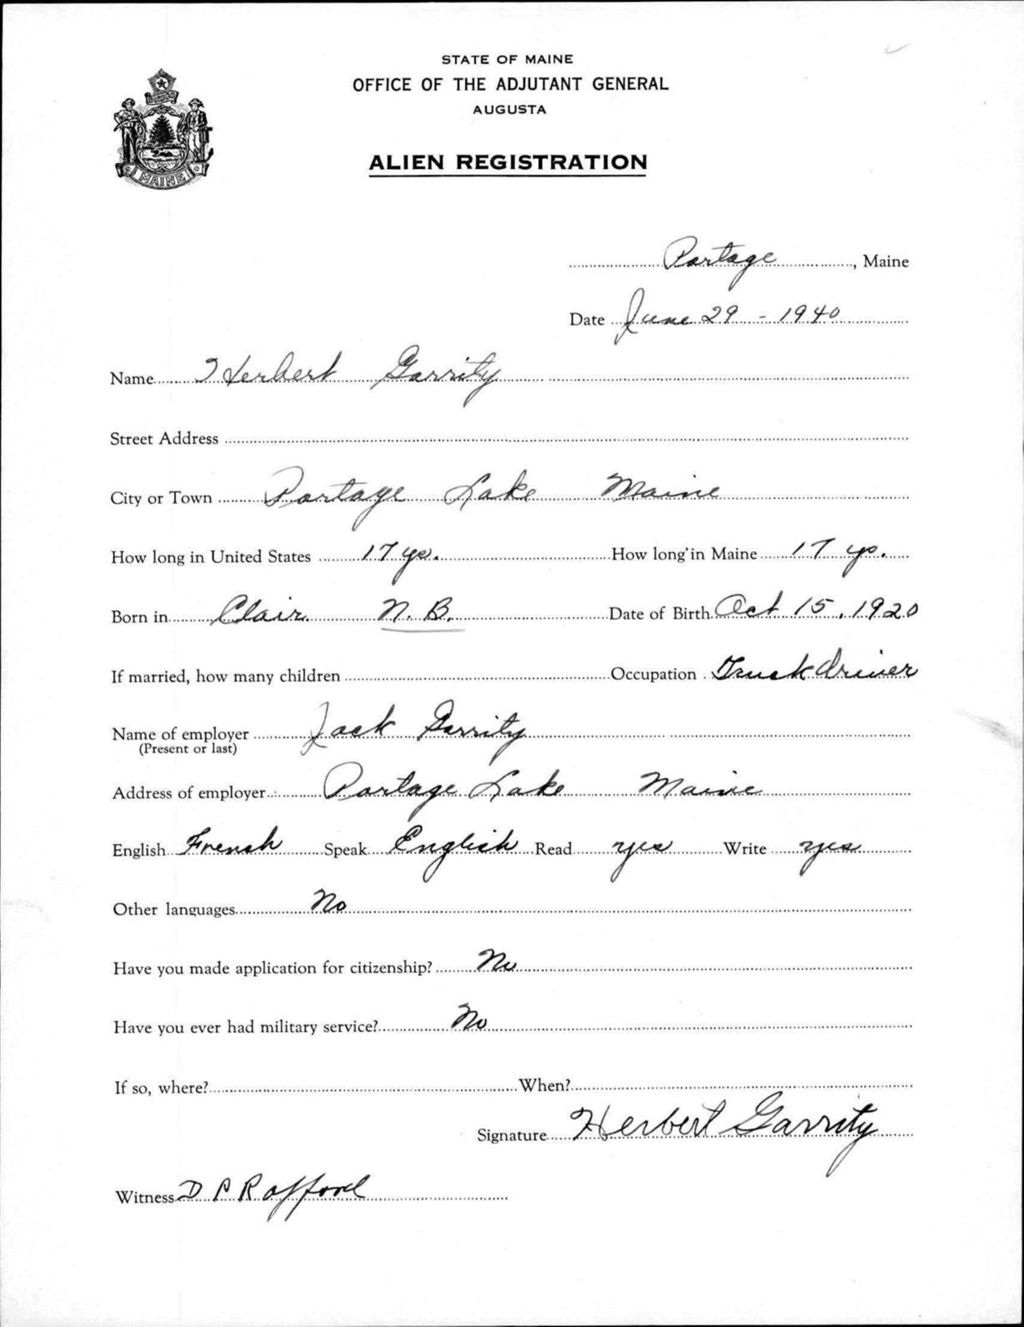 STATE OF MAINE
OFFICE OF THE ADJUTANT GENERAL
AUGUSTA
ALIEN REGISTRATION
MAINE
Portage, Maine
Date June 29 - 1940
Name Herbert Garrity
Street Address
City or Town Portage Lake Maine
How long in United States 17 ys. How long in Maine 17 ys.
Born in Clair N.B. Date of Birth Oct 15, 1920
If married, how many children Occupation Truck driver
Name of employer Jack Garrity
(Present or last)
Address of employer Portage Lake Maine
English French Speak English Read yes Write yes
Other languages No
Have you made application for citizenship? No
Have you ever had military service? No
If so, where? When?
Signature Herbert Garrity
Witness D P Rafford